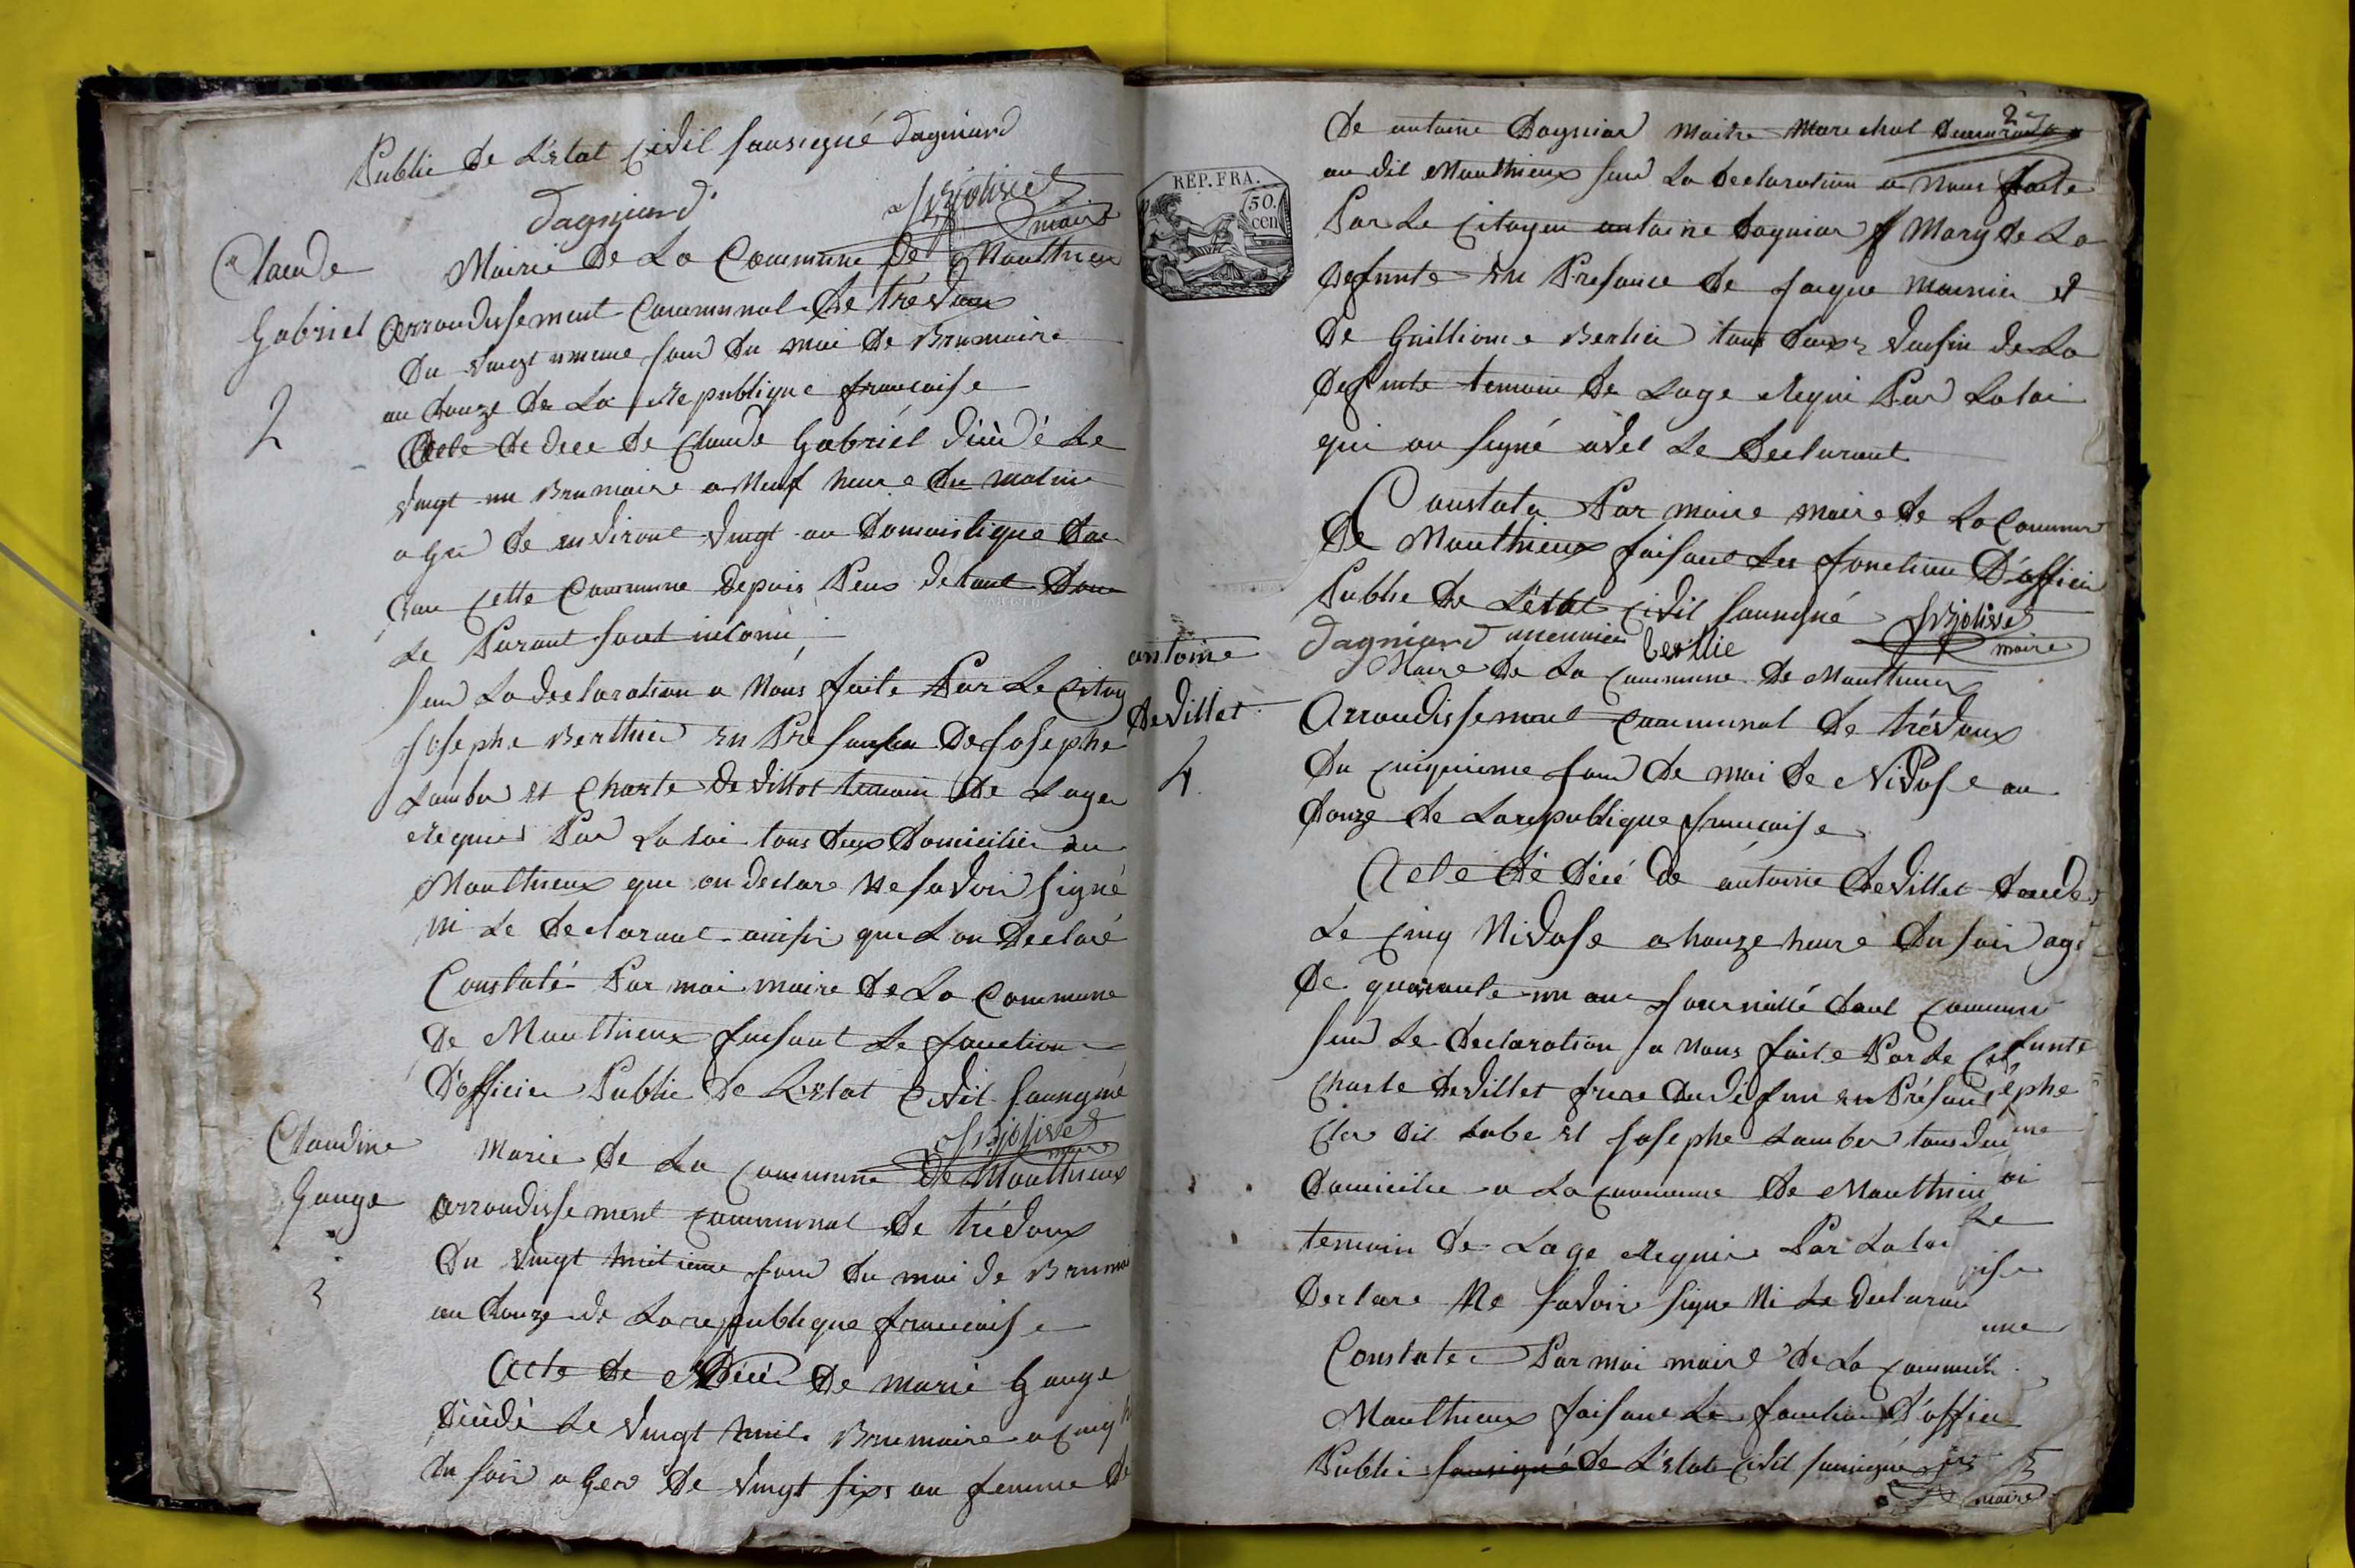 Public de L'Etat Civil Sousigné dagniard
dagniard
maire
Claude
Gabriel
2
Mairie de La Commune de Monthieux
arrondissement Communal de trévoux
Du vingt unieme jour du moi de Brumaire
an douze de La Republique francaise
Acte de dece de Claude Gabriel décédé Le
vingt un Brumaire a Neuf heure du matin
agé de environt vingt an domaistique
dan Cette Commune depuis Peux detant dont
Le Parant sont inconu
sur La declaration a Nous faite Par Le Citoy
Josephe Berthier en Presance de Josephe
Lamber et Charle de villet temoin de Lage
Requis Par La loi tous deux domicilié au
Monthieux que on declare Ne savoir signé
ni Le declarant ainsi que Lon declaré
Constaté Par moi maire de La Commune
de Monthieux faisant Le fonction
D'officier Public de L'Etat Civil sousigné
maire
Claudine
Gouge
3
Marie de La Commune de Monthieux
arrondissement communal de trévoux
Du vingt huitieme jour du moi de Brumai
an douze de La republique francaise
Acte de Décé de marie Gouge
décédé Le vingt huit Brumaire a cinq h
du soir agee de vingt six an femme de
27
REP. FRA.
50.
cen
de antoine dagniar maitre marechal
au dit Monthieux sur La declaration a Nous faite
Par Le Citoyen antoine dagniar Mary de La
defunte en Presance de Jacque monnier et
de Gulliome Berlier tous deux voisin de La
defunte temoin de Lage Requi Par La loi
qui on signé avec Le declarant
Constate Par moi maire de La Commune
de Monthieux faisant Les fonction D'officier
Public de L'etat Civil sousigné
dagniard monnier berllie
maire
antoine
devillet
4
Maire de La Commune de Monthieux
Arrondissement communal de trévoux
Du cinquieme jour de moi de Nivose an
douze de La republique francaise
Acte de décé de antoine devillet décédé
Le cinq Nivose a honze heure du soir agé
de quarante un an journaillé
sur Le declaration a Nous faite Par Le Cit
Charle devillet frere du defun en Présance
dit Labe et Josephe Lamber tous deu
domicilie a La commune de Monthieu
temoin de Lage Requis Par La loi
declare Ne savoir signe Ni Le declaran
Constate Par moi maire de La commune
Monthieux faisant Le fonction D'officier
Public sousigné de L'Etat Civil sousigné
maire